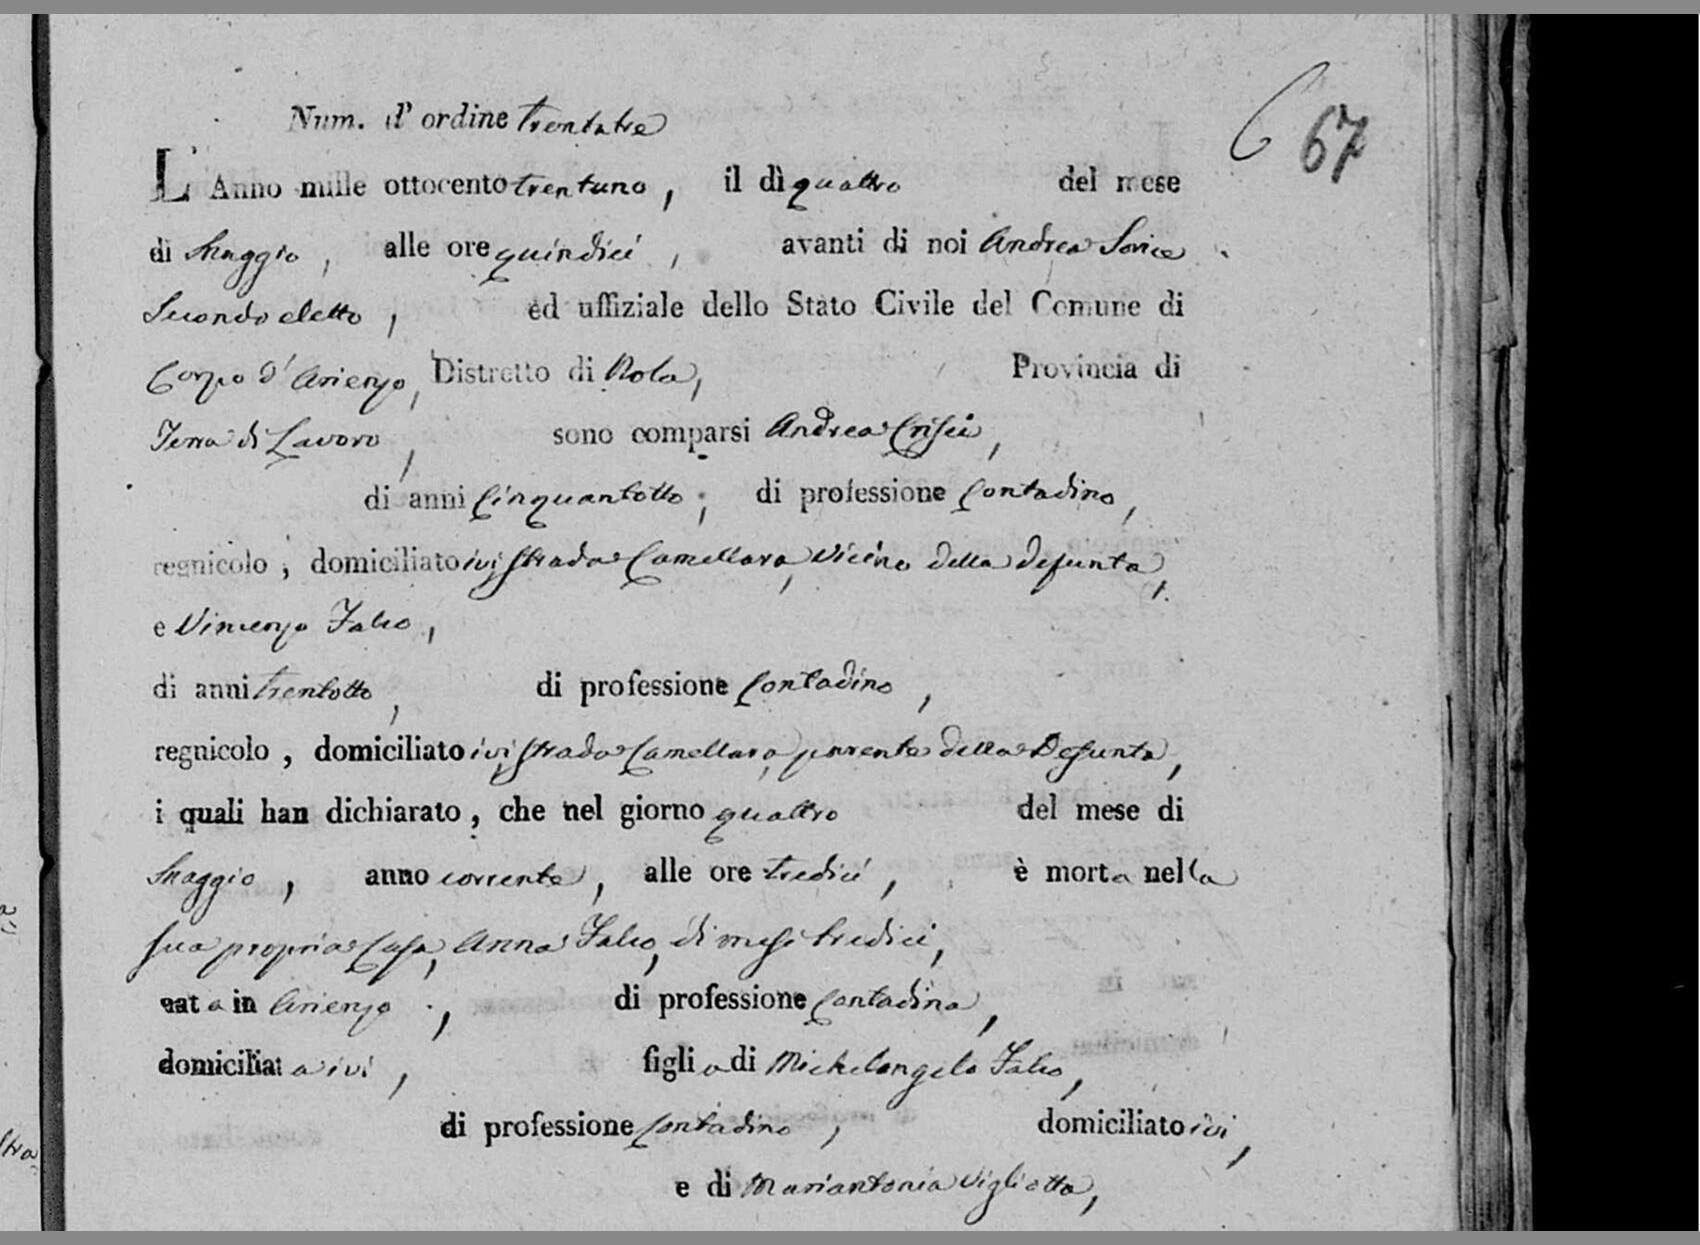 67
Num. d' ordine trentatre
L' Anno mille ottocento trentuno, il dì quattro del mese
di Maggio, alle ore quindici, avanti di noi Andrea Sorice
Secondo eletto, ed uffiziale dello Stato Civile del Comune di
Corpo d' Arienzo, Distretto di Nola, Provincia di
Terra di Lavoro, sono comparsi Andrea Crisci,
di anni Cinquantotto, di professione Contadino,
regnicolo, domiciliato ivi, strada Camellara, Vicino della defunta,
e Vincenzo Falco,
di anni trentotto, di professione Contadino,
regnicolo, domiciliato ivi, strada Camellara, parente della Defunta,
i quali han dichiarato, che nel giorno quattro del mese di
Maggio, anno corrente, alle ore tredici, è morta nella
sua propria Casa, Anna Falco, di mesi tredici,
nata in Arienzo, di professione Contadina,
domiciliata ivi, figlia di Michelangelo Falco,
di professione Contadino, domiciliato ivi,
e di Mariantonia Vigliotta,